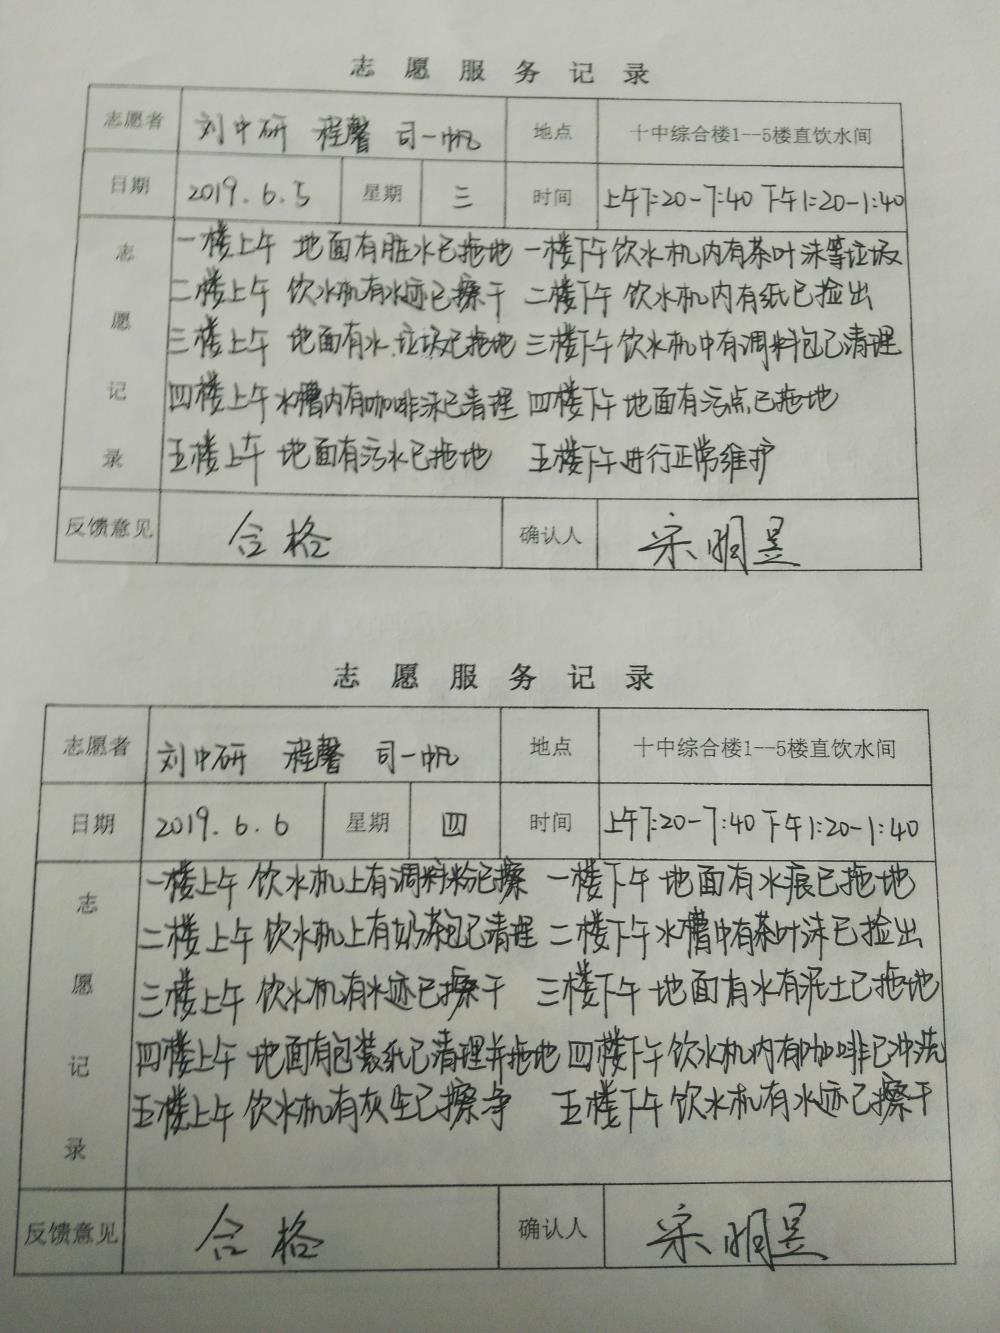 志愿服务记录
志愿者 刘中研 程馨 司一帆 地点 十中综合楼1--5楼直饮水间
日期 2019.6.5 星期 三 时间 上午7:20-7:40 下午1:20-1:40
志愿记录
一楼上午 地面有脏水已拖地 一楼下午饮水机内有茶叶沫等垃圾
二楼上午 饮水机有水迹已擦干 二楼下午 饮水机内有纸已捡出
三楼上午 地面有水.垃圾已拖地 三楼下午饮水机中有调料包已清理
四楼上午水槽内有咖啡沫已清理 四楼下午 地面有污点已拖地
五楼上午 地面有污水已拖地 五楼下午进行正常维护
反馈意见 合格 确认人 宋明昱
志愿服务记录
志愿者 刘中研 程馨 司一帆 地点 十中综合楼1--5楼直饮水间
日期 2019.6.6 星期 四 时间 上午7:20-7:40 下午1:20-1:40
志愿记录
一楼上午 饮水机上有调料粉已擦 一楼下午 地面有水痕已拖地
二楼上午 饮水机上有奶茶包已清理 二楼下午水槽中有茶叶沫已捡出
三楼上午 饮水机有水迹已擦干 三楼下午 地面有水有泥土已拖地
四楼上午 地面有包装纸已清理并拖地 四楼下午饮水机内有咖啡已冲洗
五楼上午 饮水机有灰尘已擦净 五楼下午 饮水机有水迹已擦干
反馈意见 合格 确认人 宋明昱